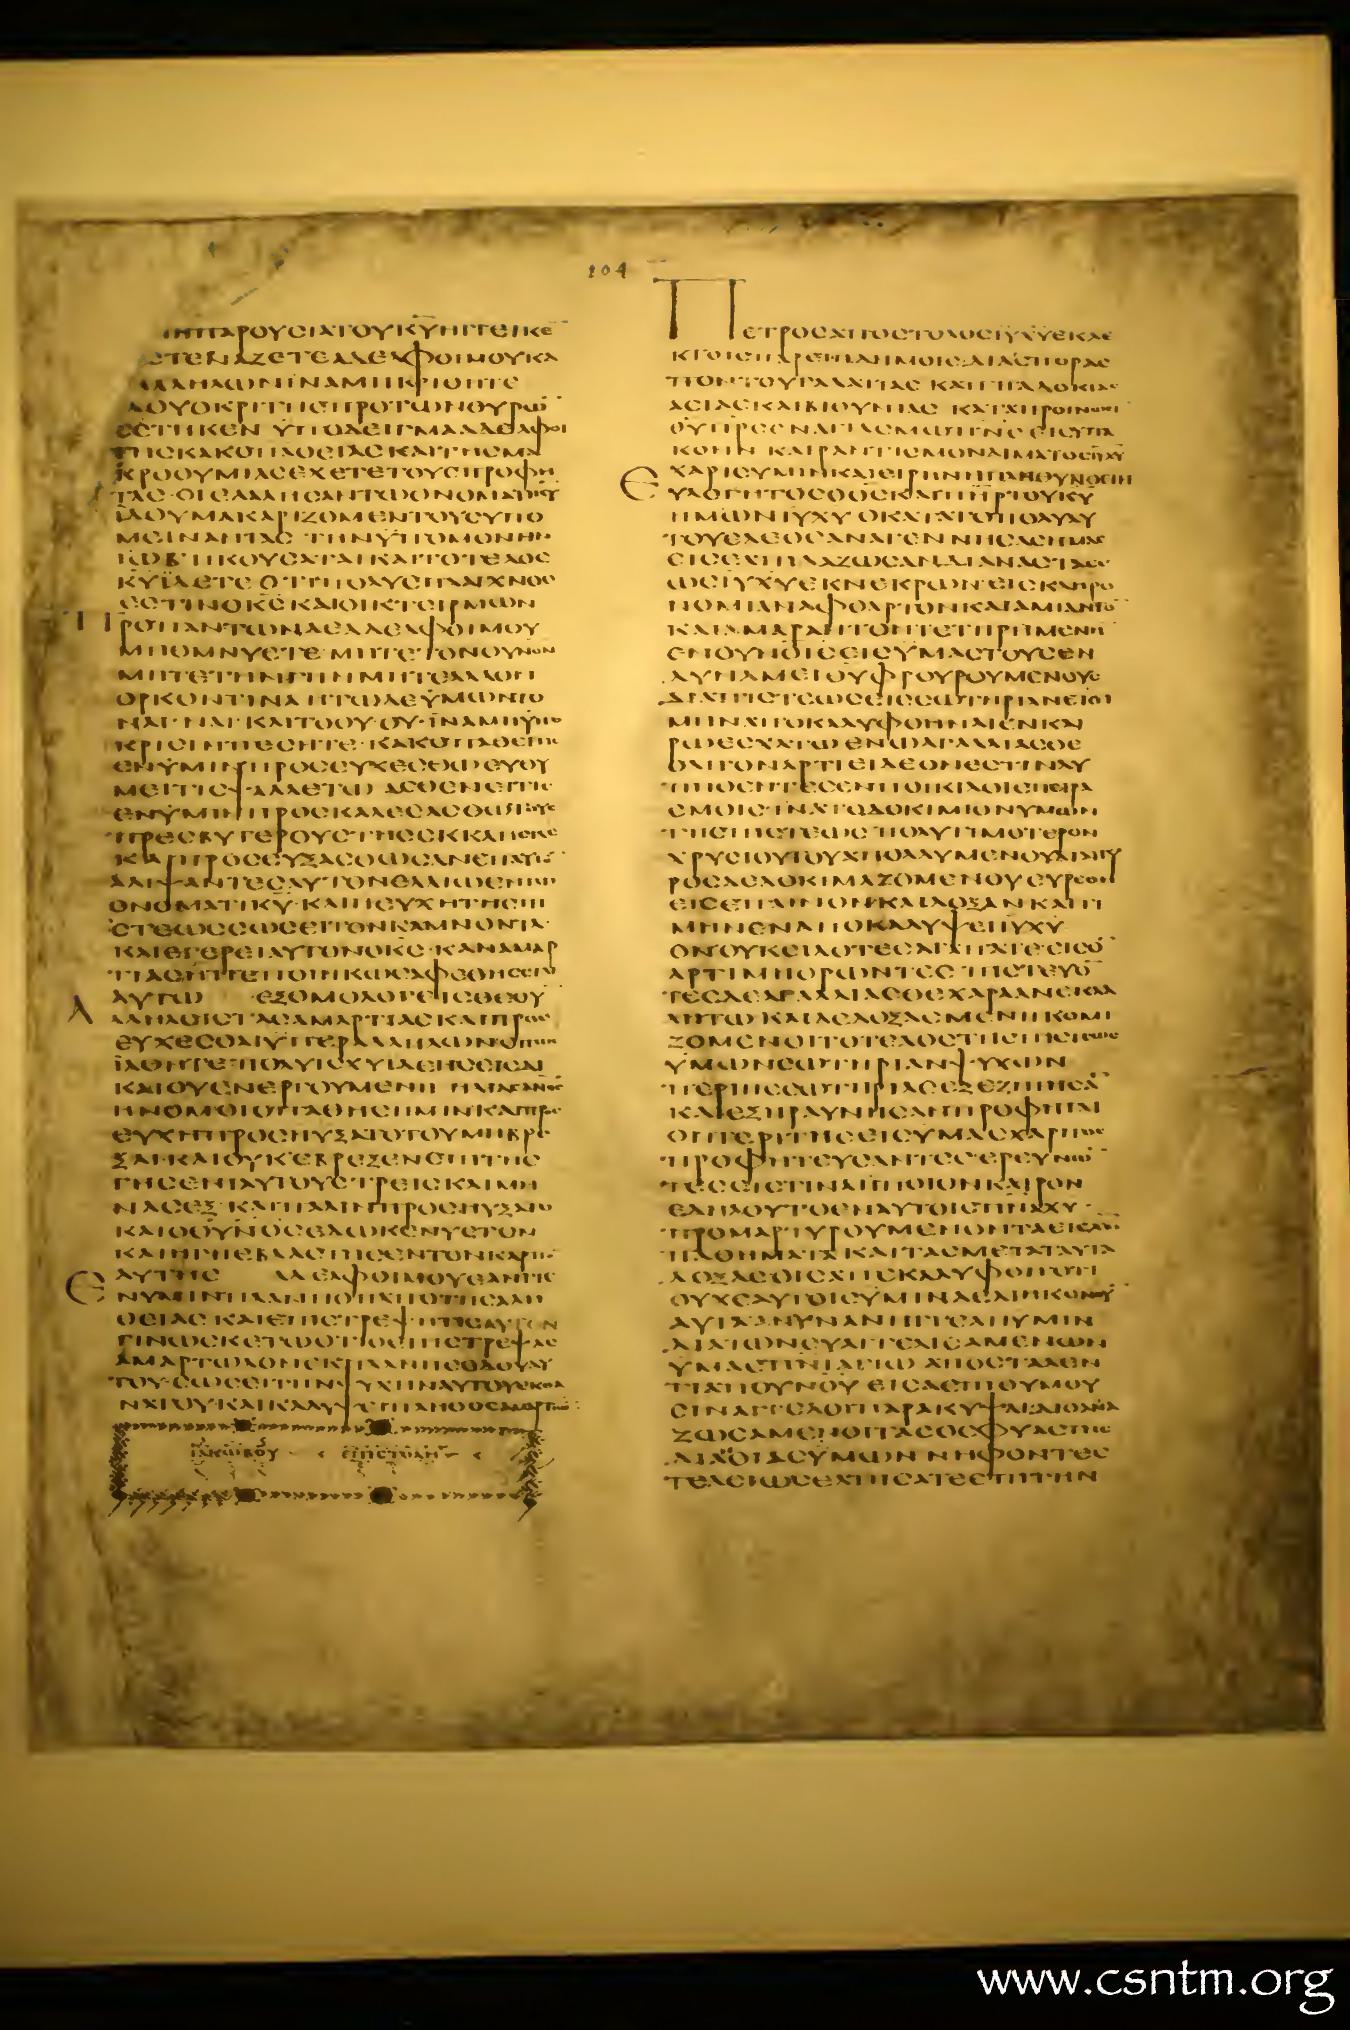 104
ΗΠΑΡΟΥΣΙΑΤΟΥΚΥΗΓΓΕΙΚΕ
ΣΤΕΝΑΖΕΤΕΑΔΕΛΦΟΙΜΟΥΚΑ
ΑΛΛΗΛΩΝΙΝΑΜΗΚΡΙΘΗΤΕ
ΔΟΥΟΚΡΙΤΗΣΠΡΟΤΩΝΘΥΡΩ
ΕΣΤΗΚΕΝ ΥΠΟΔΕΙΓΜΑΑΔΕΛΦΟΙ
ΤΗΣΚΑΚΟΠΑΘΕΙΑΣΚΑΙΤΗΣΜΑ
ΚΡΟΘΥΜΙΑΣΕΧΕΤΕΤΟΥΣΠΡΟΦΗ
ΤΑΣ·ΟΙΕΛΑΛΗΣΑΝΤΩΟΝΟΜΑΤΙΚΥ
ΙΔΟΥΜΑΚΑΡΙΖΟΜΕΝΤΟΥΣΥΠΟ
ΜΕΙΝΑΝΤΑΣ ΤΗΝΥΠΟΜΟΝΗΝ
ΙΩΒ ΗΚΟΥΣΑΤΑΙΚΑΙΤΟΤΕΛΟΣ
ΚΥΙΔΕΤΕ ΟΤΙΠΟΛΥΣΠΛΑΓΧΝΟΣ
ΕΣΤΙΝΟΚΣΚΑΙΟΙΚΤΕΙΡΜΩΝ
ΠΡΟΠΑΝΤΩΝΔΕΑΔΕΛΦΟΙΜΟΥ
ΜΗΟΜΝΥΕΤΕ ΜΗΤΕΤΟΝΟΥΝΟΝ
ΜΗΤΕΤΗΝΓΗΝΜΗΤΕΑΛΛΟΝ
ΟΡΚΟΝΤΙΝΑ ΗΤΩΔΕΥΜΩΝΤΟ
ΝΑΙ·ΝΑΙ·ΚΑΙΤΟΟΥ·ΟΥ·ΙΝΑΜΗΥΠΟ
ΚΡΙΣΙΝΠΕΣΗΤΕ·ΚΑΚΟΠΑΘΕΙΤΙΣ
ΕΝΥΜΙΝΠΡΟΣΕΥΧΕΣΘΩΕΥΘΥ
ΜΕΙΤΙΣΨΑΛΛΕΤΩ ΑΣΘΕΝΕΙΤΙΣ
ΕΝΥΜΙΝΠΡΟΣΚΑΛΕΣΑΣΘΩΤΟΥΣ
ΠΡΕΣΒΥΤΕΡΟΥΣΤΗΣΕΚΚΛΗΣΙΑΣ
ΚΑΙΠΡΟΣΕΥΞΑΣΘΩΣΑΝΕΠΑΥΤΟ
ΑΛΙΨΑΝΤΕΣΑΥΤΟΝΕΛΑΙΩΕΝΤΩ
ΟΝΟΜΑΤΙΚΥ·ΚΑΙΗΕΥΧΗΤΗΣΠΙ
ΣΤΕΩΣΣΩΣΕΙΤΟΝΚΑΜΝΟΝΤΑ·
ΚΑΙΕΓΕΡΕΙΑΥΤΟΝΟΚΣ·ΚΑΝΑΜΑΡ
ΤΙΑΣΗΠΕΠΟΙΗΚΩΣΑΦΕΘΗΣΕΤΑΙ
ΑΥΤΩ ΕΞΟΜΟΛΟΓΕΙΣΘΕΟΥ
ΑΛΛΗΛΟΙΣΤΑΣΑΜΑΡΤΙΑΣΚΑΙΠΡΟΣ
ΕΥΧΕΣΘΑΙΥΠΕΡΑΛΛΗΛΩΝΟΠΩΣ
ΙΑΘΗΤΕ·ΠΟΛΥΙΣΧΥΙΔΕΗΣΙΣΔΙ
ΚΑΙΟΥΕΝΕΡΓΟΥΜΕΝΗ ΗΛΙΑΣΑΝΟΣ
ΗΝΟΜΟΙΟΠΑΘΗΣΗΜΙΝΚΑΙΠΡΟΣ
ΕΥΧΗΠΡΟΣΗΥΞΑΤΟΤΟΥΜΗΒΡΕ
ΞΑΙ·ΚΑΙΟΥΚΕΒΡΕΞΕΝΕΠΙΤΗΣ
ΓΗΣΕΝΙΑΥΤΟΥΣΤΡΕΙΣΚΑΙΜΗ
ΝΑΣΕΞ·ΚΑΙΠΑΛΙΝΠΡΟΣΗΥΞΑΤΟ
ΚΑΙΟΟΥΝΟΣΕΔΩΚΕΝΥΕΤΟΝ
ΚΑΙΗΓΗΕΒΛΑΣΤΗΣΕΝΤΟΝΚΑΡΠΟ
ΑΥΤΗΣ ΑΔΕΛΦΟΙΜΟΥΕΑΝΤΙΣ
ΕΝΥΜΙΝΠΛΑΝΗΘΗΑΠΟΤΗΣΑΛΗ
ΘΕΙΑΣΚΑΙΕΠΙΣΤΡΕΨΗΤΙΣΑΥΤΟΝ
ΓΙΝΩΣΚΕΤΩΟΤΙΟΕΠΙΣΤΡΕΨΑΣ
ΑΜΑΡΤΩΛΟΝΕΚΠΛΑΝΗΣΟΔΟΥΑΥ
ΤΟΥ·ΣΩΣΕΙΤΗΝΨΥΧΗΝΑΥΤΟΥΕΚΘΑ
ΝΑΤΟΥΚΑΙΚΑΛΥΨΕΙΠΛΗΘΟΣΑΜΑΡΤΙΩ
ΙΑΚΩΒΟΥ ΕΠΙΣΤΟΛΗ
ΠΕΤΡΟΣΑΠΟΣΤΟΛΟΣΙΥΧΥΕΚΛΕ
ΚΤΟΙΣΠΑΡΕΠΙΔΗΜΟΙΣΔΙΑΣΠΟΡΑΣ
ΠΟΝΤΟΥΓΑΛΑΤΙΑΣ ΚΑΠΠΑΔΟΚΙΑΣ
ΑΣΙΑΣΚΑΙΒΙΘΥΝΙΑΣ ΚΑΤΑΠΡΟΓΝΩΣΙ
ΘΥΠΡΣΕΝΑΓΙΑΣΜΩΠΝΣ ΕΙΣΥΠΑ
ΚΟΗΝ ΚΑΙΡΑΝΤΙΣΜΟΝΑΙΜΑΤΟΣΙΥΧΥ
ΧΑΡΙΣΥΜΙΝΚΑΙΕΙΡΗΝΗΠΛΗΘΥΝΘΕΙΗ
ΕΥΛΟΓΗΤΟΣΟΘΣΚΑΙΠΗΡΤΟΥΚΥ
ΗΜΩΝΙΥΧΥ ΟΚΑΤΑΤΟΠΟΛΥΑΥ
ΤΟΥΕΛΕΟΣΑΝΑΓΕΝΝΗΣΑΣΗΜΑΣ
ΕΙΣΕΛΠΙΔΑΖΩΣΑΝΔΙΑΝΑΣΤΑΣΕ
ΩΣΙΥΧΥΕΚΝΕΚΡΩΝ·ΕΙΣΚΛΗΡΟ
ΝΟΜΙΑΝΑΦΘΑΡΤΟΝΚΑΙΑΜΙΑΝΤΟ
ΚΑΙΑΜΑΡΑΝΤΟΝΤΕΤΗΡΗΜΕΝΗ
ΕΝΟΥΝΟΙΣΕΙΣΥΜΑΣΤΟΥΣΕΝ
ΔΥΝΑΜΕΙΘΥΦΡΟΥΡΟΥΜΕΝΟΥΣ
ΔΙΑΠΙΣΤΕΩΣΕΙΣΣΩΤΗΡΙΑΝΕΤΟΙ
ΜΗΝΑΠΟΚΑΛΥΦΘΗΝΑΙΕΝΚΑΙ
ΡΩΕΣΧΑΤΩ ΕΝΩΑΓΑΛΛΙΑΣΘΕ
ΟΛΙΓΟΝΑΡΤΙΕΙΔΕΟΝΕΣΤΙΝΛΥ
ΠΗΘΕΝΤΕΣΕΝΠΟΙΚΙΛΟΙΣΠΕΙΡΑ
ΣΜΟΙΣ·ΙΝΑΤΟΔΟΚΙΜΙΟΝΥΜΩΝ
ΤΗΣΠΙΣΤΕΩΣ ΠΟΛΥΤΙΜΟΤΕΡΟΝ
ΧΡΥΣΙΟΥΤΟΥΑΠΟΛΛΥΜΕΝΟΥΔΙΑΠΥ
ΡΟΣΔΕΔΟΚΙΜΑΖΟΜΕΝΟΥΕΥΡΕΘΗ
ΕΙΣΕΠΑΙΝΟΝΚΑΙΔΟΞΑΝΚΑΙΤΙ
ΜΗΝΕΝΑΠΟΚΑΛΥΨΕΙΙΥΧΥ
ΟΝΟΥΚΕΙΔΟΤΕΣΑΓΑΠΑΤΕΕΙΣΟ
ΑΡΤΙΜΗΟΡΩΝΤΕΣ ΠΙΣΤΕΥΟ
ΤΕΣΔΕΑΓΑΛΛΙΑΣΘΕΧΑΡΑΑΝΕΚΛΑ
ΛΗΤΩ ΚΑΙΔΕΔΟΞΑΣΜΕΝΗΚΟΜΙ
ΖΟΜΕΝΟΙΤΟΤΕΛΟΣΤΗΣΠΙΣΤΕΩΣ
ΥΜΩΝΣΩΤΗΡΙΑΝΨΥΧΩΝ
ΠΕΡΙΗΣΣΩΤΗΡΙΑΣΕΞΕΖΗΤΗΣΑ
ΚΑΙΕΞΗΡΑΥΝΗΣΑΝΠΡΟΦΗΤΑΙ
ΟΙΠΕΡΙΤΗΣΕΙΣΥΜΑΣΧΑΡΙΤΟΣ
ΠΡΟΦΗΤΕΥΣΑΝΤΕΣ·ΕΡΕΥΝΩ
ΤΕΣΕΙΣΤΙΝΑΗΠΟΙΟΝΚΑΙΡΟΝ
ΕΔΗΛΟΥΤΟΕΝΑΥΤΟΙΣΠΝΑΧΥ
ΠΡΟΜΑΡΤΥΡΟΥΜΕΝΟΝΤΑΕΙΣΧΝ
ΠΑΘΗΜΑΤΑ ΚΑΙΤΑΣΜΕΤΑΤΑΥΤΑ
ΔΟΞΑΣΟΙΣΑΠΕΚΑΛΥΦΘΗΟΤΙ
ΟΥΧΕΑΥΤΟΙΣΥΜΙΝΔΕΔΙΗΚΟΝΟΥ
ΑΥΤΑΑΝΥΝΑΝΗΓΓΕΛΗΥΜΙΝ
ΔΙΑΤΩΝΕΥΑΓΓΕΛΙΣΑΜΕΝΩΝ
ΥΜΑΣΠΝΙΑΓΙΩ ΑΠΟΣΤΑΛΕΝ
ΤΙΑΠΟΥΝΟΥ ΕΙΣΑΕΠΙΘΥΜΟΥ
ΣΙΝΑΓΓΕΛΟΙΠΑΡΑΚΥΨΑΙΔΙΟΑΝΑ
ΖΩΣΑΜΕΝΟΙΤΑΣΟΣΦΥΑΣΤΗΣ
ΔΙΑΝΟΙΑΣΥΜΩΝ ΝΗΦΟΝΤΕΣ
ΤΕΛΕΙΩΣΕΛΠΙΣΑΤΕΕΠΙΤΗΝ
www.csntm.org